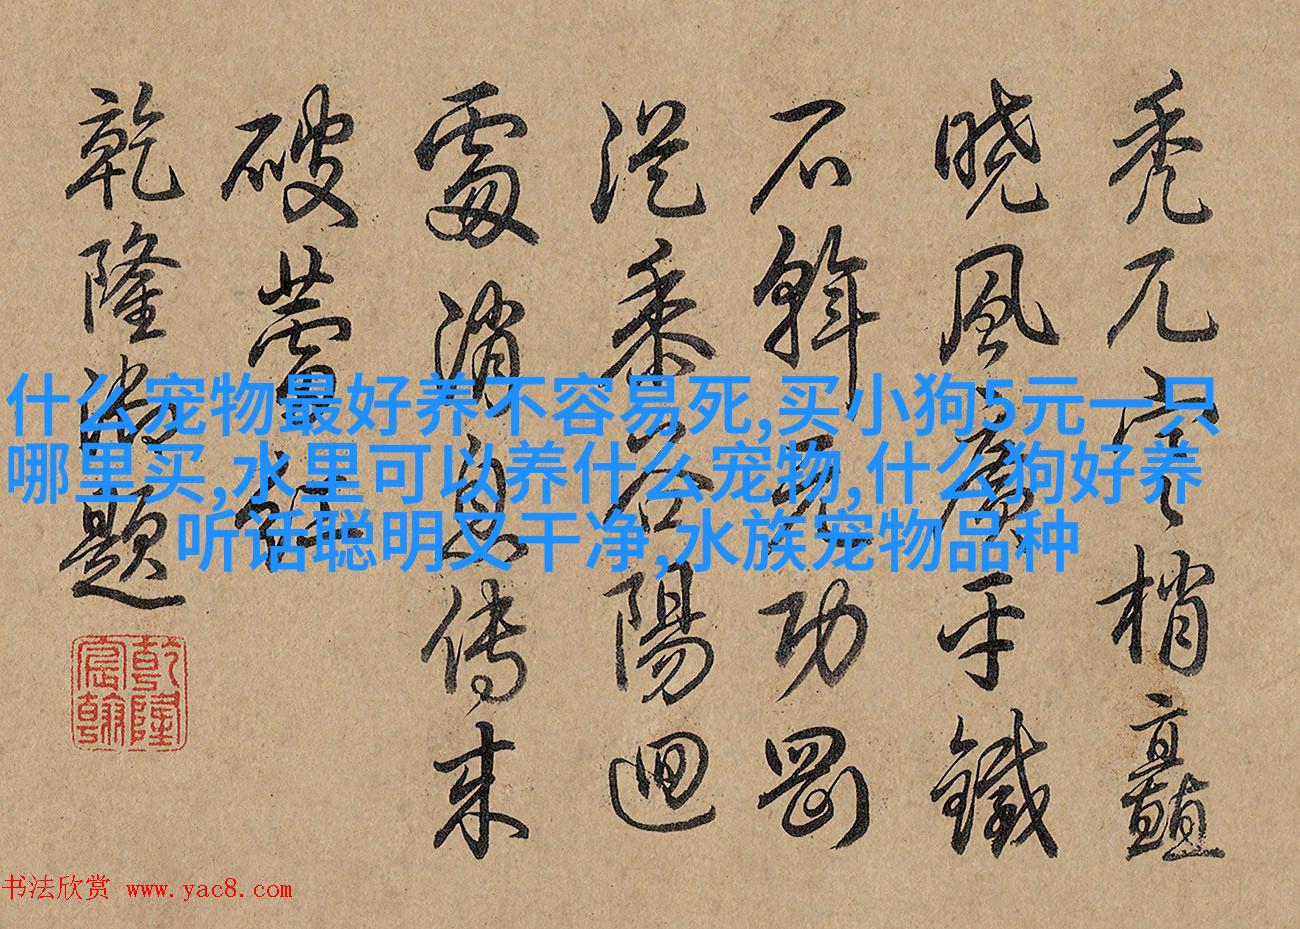 什么宠物最好养不容易死,买小狗5元一只
哪里买,水里可以养什么宠物,什么狗好养
听话聪明又干净,水族宠物品种
秃兀雲梢矗
晓风廣平鐵
石斡元功罢
從黍谷陽迴
霱消息傳来
破蕾
乾隆御題
乾隆宸翰
书法欣赏 www.yac8.com